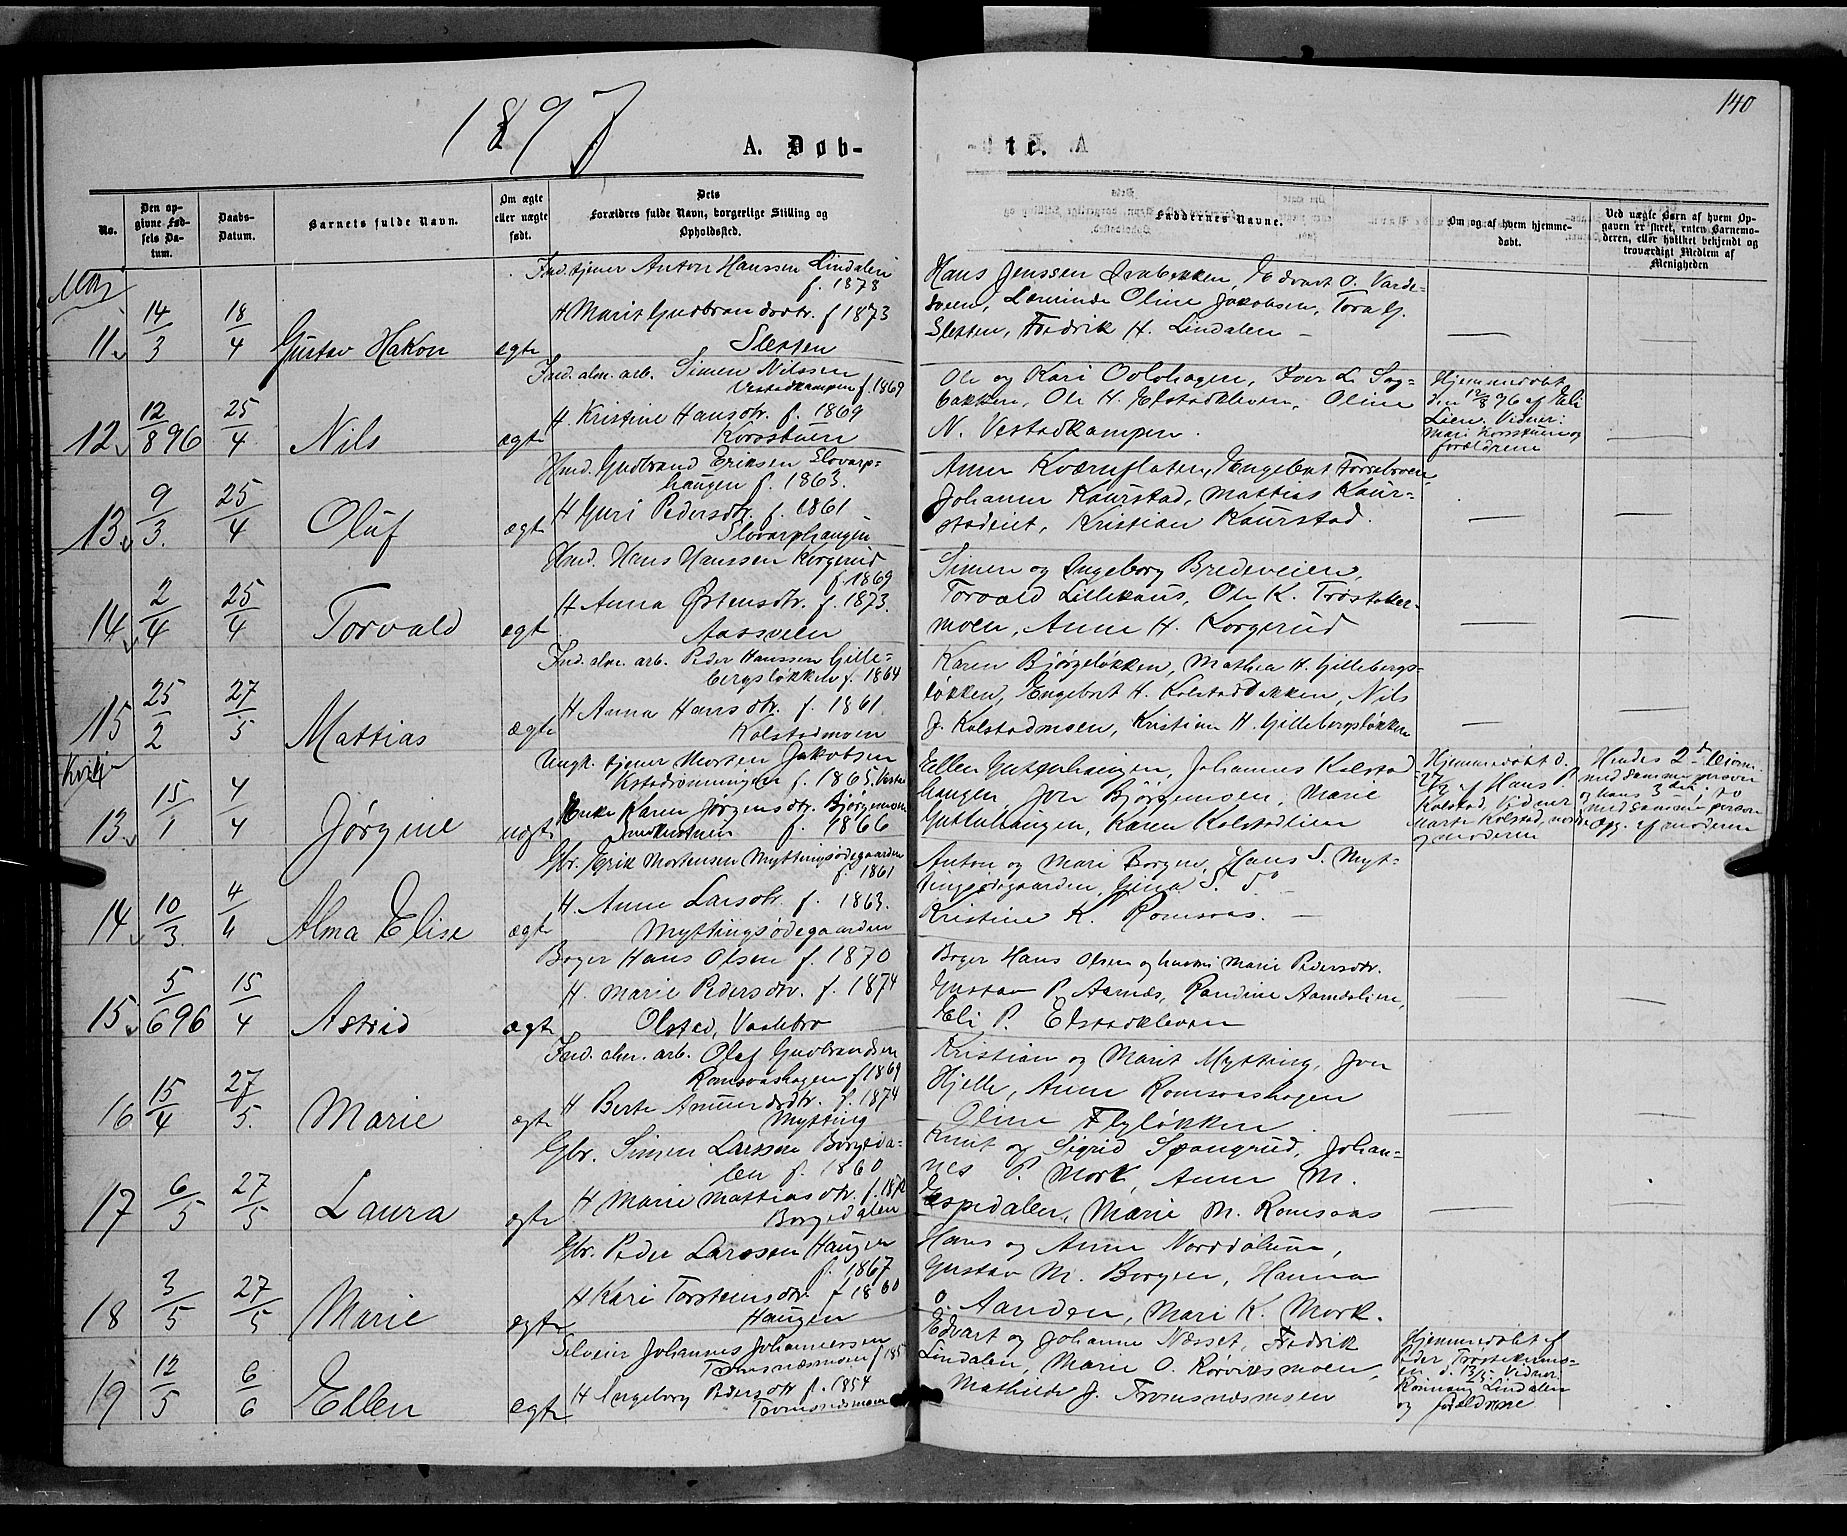 1897
140
A. Døb-
te. A
No.
Den op-
givne Fød-
sels Da-
tum.
Daabs-
Datum.
Barnets fulde Navn.
Om ægte
eller uægte
født.
Dets
Forældres fulde Navn, borgerlige Stilling og
Opholdssted.
Faddernes Navne.
Om og af hvem hjemme-
døbt.
Ved uægte Barn af hvem Op-
gaven er skeet, enten Barnemo-
deren, eller hvilket bekjendt og
troværdigt Medlem af
Menigheden
11 14/3 18/4 Gustav Hakon ægte
Ind. tjener Anton Hanssen Lindalen
f. 1873
H Marit Gudbrandsdtr. f 1873
Sletten
Hans Jenssen Edvart O.
Oline Jakobsen, Tora G.
Sletten, Fredrik H. Lindalen
12 12/8 96 25/4 Nils ægte
Ind. alm. arb. Simen Nilssen
Vestadkampen f. 1869
H. Kristine Hansdtr. f. 1869
Korsstuen
Ole og Kari Iver L. Sag-
bakken, Ole H. Elstadkleven, Oline
N. Vestadkampen.
Hjemmedøbt
den 12/8 96 af Eli
Lien. Vidner:
Mari Korsstuen og
forældrene
13 9/3 25/4 Oluf ægte
Hmd. Gudbrand Eriksen Slovarp-
haugen f. 1863.
H Guri Pedersdtr. f. 1861
Slovarphaugen
Anne Kværnflaten, Engebret
Johanne Kaurstad, Mattias Kaur-
stadeiet, Kristian Kaurstad.
14 2/4 25/4 Torvald ægte
Hmd. Hans Hanssen Korgerud
f. 1869
H Anna Østensdtr. f. 1873.
Aassveen
Simen og Ingeborg Bredeveien,
Torvald Lillehaus, Ole K. Trøstaker-
moen, Anne H. Korgerud
15 25/2 27/5 Mattias ægte
Ind. alm. arb. Peder Hanssen Gille-
bergsløkken f. 1864
H Anna Hansdtr. f. 1861.
Kolstadmoen
Karen Bjørgeløkken, Mathea H. Gillebergs-
løkken, Engebret H. Kolstadbakken, Nils
J. Kolstadmoen, Kristian H. Gillebergsløkken
13 15/1 4/4 Jørgine uægte
Ungk. tjener Morten Jakobsen
f. 1865
Enke Karen Jørgensdtr. Bjørgemoen
f. 1866
Ellen Guttuhaugen, Johannes Kolstad
haugen, Jon Bjørgemoen, Marie
Guttuhaugen, Karen Kolstadlien
Hjemmedøbt d.
af Hans P.
Kolstad, Vidner
Marte Kolstad,
og moderen
Hendes 2d barn
med samme person
og hans 3die, do
med samme person
Opg. af moderen
14 10/3 4/6 Alma Elise ægte
Gbr. Erik Mortensen Myttingsødegaarden
f. 1861
H. Anne Larsdtr. f. 1863.
Myttingsødegaarden
Anton og Mari Borgen, Hans S. Myt-
tingsødegaarden, Gina S. do
Kristine K. Romsaas.
15 5/6 96 15/4 Astrid ægte
Bager Hans Olsen f. 1870
H. Marie Pedersdtr. f. 1874
Olstad, Vaalebro
Bager Hans Olsen og hustru Marie Pedersdtr.
Gustav P. Aarnæs, Randine Aamodlien,
Eli P. Elstadkleven
16 15/4 27/5 Marie ægte
Ind. alm. arb. Olaf Gudbrandsen
Romsaashagen f 1869
H Berte Amundsdtr. f. 1874
Mytting
Kristian og Marit Mytting, Jon
Hjelle, Anne Romsaashagen
Oline Flyløkken
17 6/5 27/5 Laura ægte
Gbr. Simen Larssen Borgeda-
len f. 1860
H Marie Mattiasdtr.
Borgedalen
Knut og Sigrid Spangrud, Johan-
nes P. Mork, Anne M.
Espedalen, Marie M. Romsaas
18 3/5 27/5 Marie ægte
Gbr. Peder Larssen Haugen
f. 1867
H Kari Torsteinsdtr. f 1860
Haugen
Hans og Anne Norddalume,
Gustav M. Borgen, Hanna
O. Aanden, Mari K. Mork.
19 12/5 6/6 Ellen ægte
Selveier Johannes Johannessen
Tromsnæsmoen
H Ingeborg Pedersdtr f. 1854
Tromsnæsmoen
Edvart og Johanne Næsset, Fredrik
Lindalen, Marie O. Rørviksmoen,
Mathilde J. Tromsnæsmoen
Hjemmedøbt af
Peder Trøstakermo-
en d. 13/5. Vidner
Lindalen
og forældrene